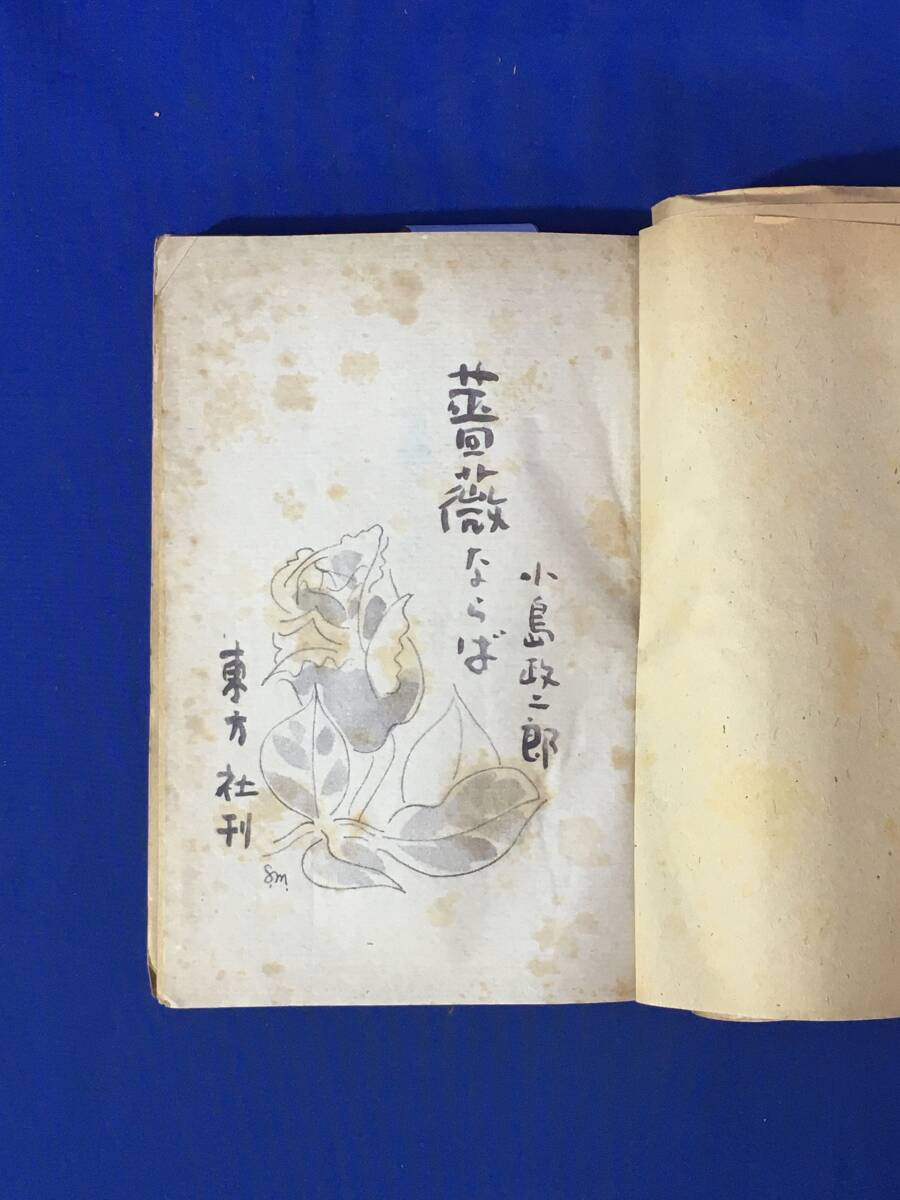 薔薇ならば
小島政二郎
東方社刊
S.M.